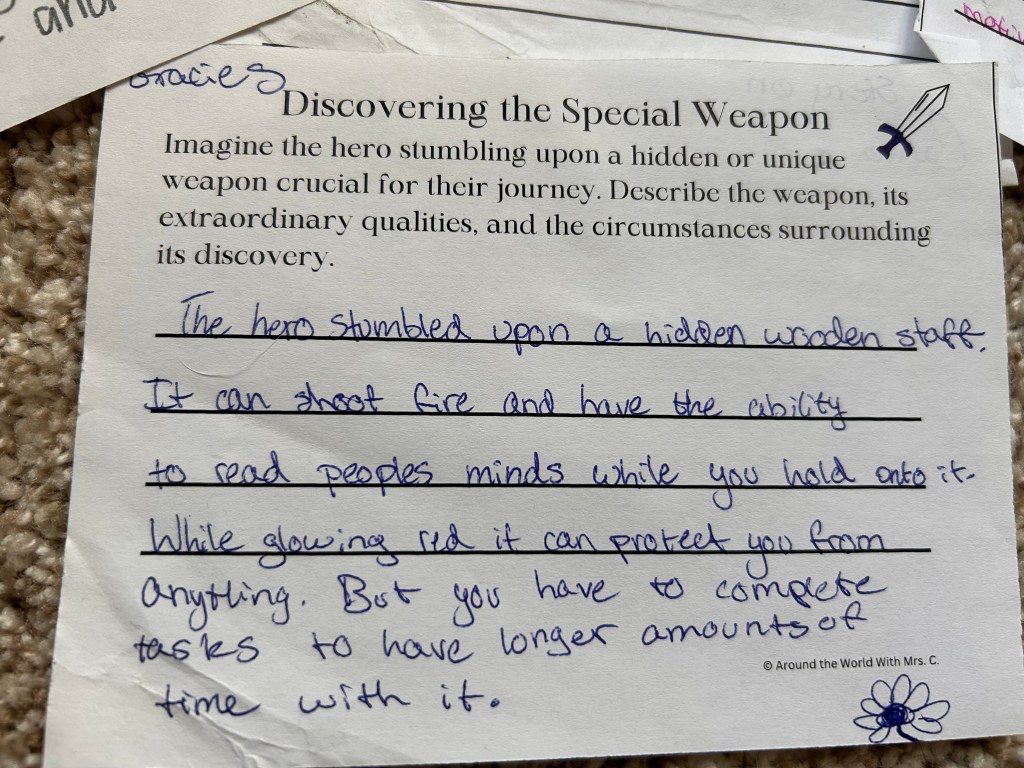 and
Gracie S
Discovering the Special Weapon
Imagine the hero stumbling upon a hidden or unique
weapon crucial for their journey. Describe the weapon, its
extraordinary qualities, and the circumstances surrounding
its discovery.
The hero stumbled upon a hidden wooden staff.
It can shoot fire and have the ability
to read peoples minds while you hold onto it.
While glowing red it can protect you from
anything. But you have to complete
tasks to have longer amounts of
time with it.
© Around the World With Mrs. C.